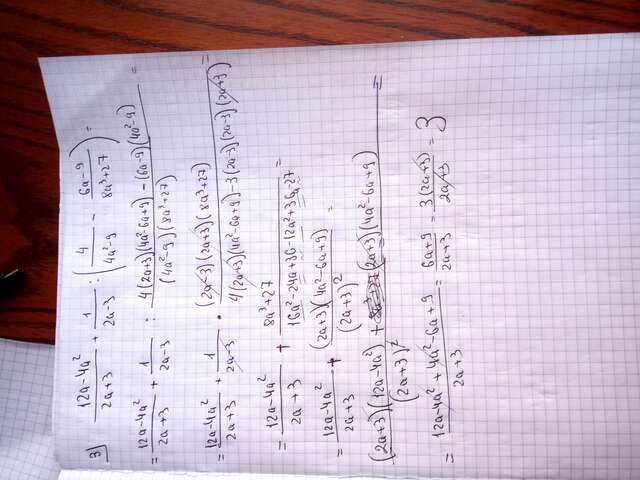 3) (12a-4a²)/(2a+3) + 1/(2a-3) : (4/(4a²-9) - (6a-9)/(8a³+27)) =
= (12a-4a²)/(2a+3) + 1/(2a-3) : (4(2a+3)(4a²-6a+9) - (6a-9)(4a²-9))/((4a²-9)(8a³+27)) =
= (12a-4a²)/(2a+3) + 1/(2a-3) • ((2a-3)(2a+3)(8a³+27))/(4(2a+3)(4a²-6a+9) - 3(2a-3)(2a-3)(2a+3)) =
= (12a-4a²)/(2a+3) + (8a³+27)/(16a²-24a+36-12a²+36a-27) =
= (12a-4a²)/(2a+3) + ((2a+3)(4a²-6a+9))/(2a+3)² =
((2a+3)(12a-4a²) + (2a+3)(4a²-6a+9))/(2a+3)² =
= (12a-4a²+4a²-6a+9)/(2a+3) = (6a+9)/(2a+3) = 3(2a+3)/(2a+3) = 3